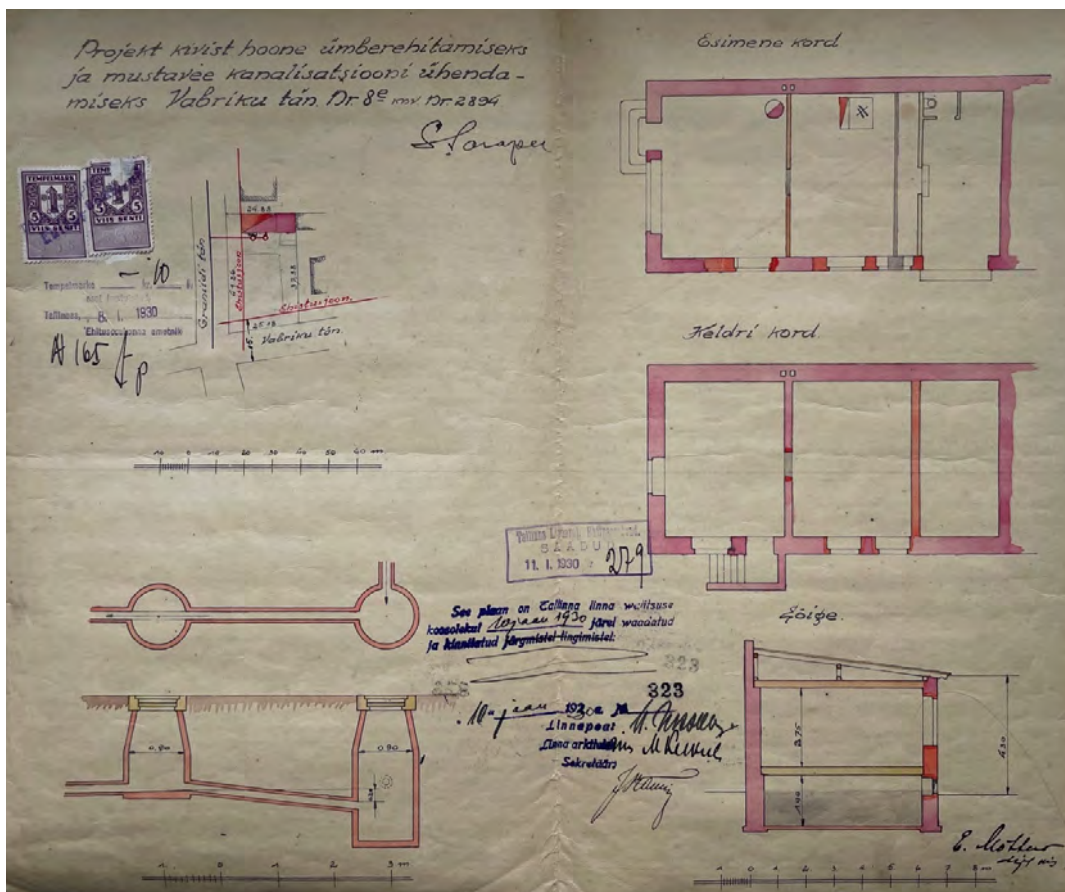 Projekt kivist hoone ümberehitamiseks
ja mustavee kanalisatsiooni ühenda-
miseks Vabriku tän. Nr 8e kinv. Nr 2894
TEMPELMARK
5 5
VIIS SENTI
TEMPELMARK
5 5
VIIS SENTI
Tempelmarka 10
Tallinnas, 8. I. 1930
Ehitusosakonna ametnik
A 165
24.88
Graniidi tän
Ehitusjoon
Ehitusjoon
25.18
15.
Vabriku tän.
10 0 10 20 30 40 50 60 m
Esimene kord
Keldri kord.
Tallinna Linnaval. Ehitusosakond.
SAADUD
11. I. 1930 279
See plaan on Tallinna linna walitsuse
koosolekul 10 jaan 1930 järel waadatud
ja kinnitatud järgmistel tingimistel:
323
323
10 jaan 1930 a
Linnapea
Linna arhitekt
Sekretäär
0.90
0.90
1 0 1 2 3 m
Lõige.
2.75
1.90
4.30
1 0 1 2 3 4 5 6 7 8 m